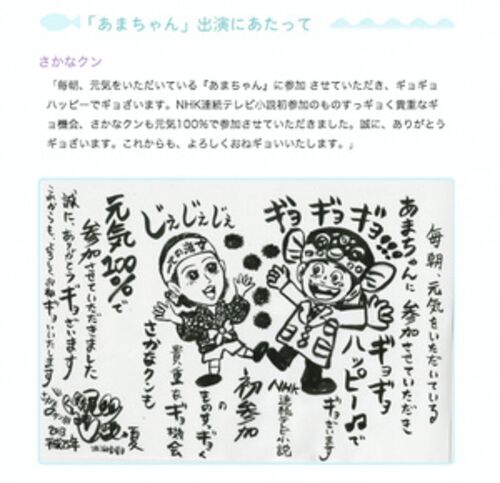 「あまちゃん」出演にあたって
さかなクン
「毎朝、元気をいただいている『あまちゃん』に参加 させていただき、ギョギョ
ハッピーでギョざいます。NHK連続テレビ小説初参加のものすっギョく貴重なギ
ョ機会、さかなクンも元気100%で参加させていただきました。誠に、ありがとう
ギョざいます。これからも、よろしくおねギョいいたします。」
毎朝、元気をいただいている
あまちゃんに参加させていただき
ギョギョギョ!!!
ギョギョ
ハッピー♫で
ギョざいます
NHK
連続テレビ小説
初参加
の
ものすっギョく
貴重なギョ機会
さかなクンも
じぇじぇじぇ
元気
100%で
参加させていただきました
誠に、ありがとうギョざいます
これからも、よろしくお願ギョいいたします
2013
平成25年
夏